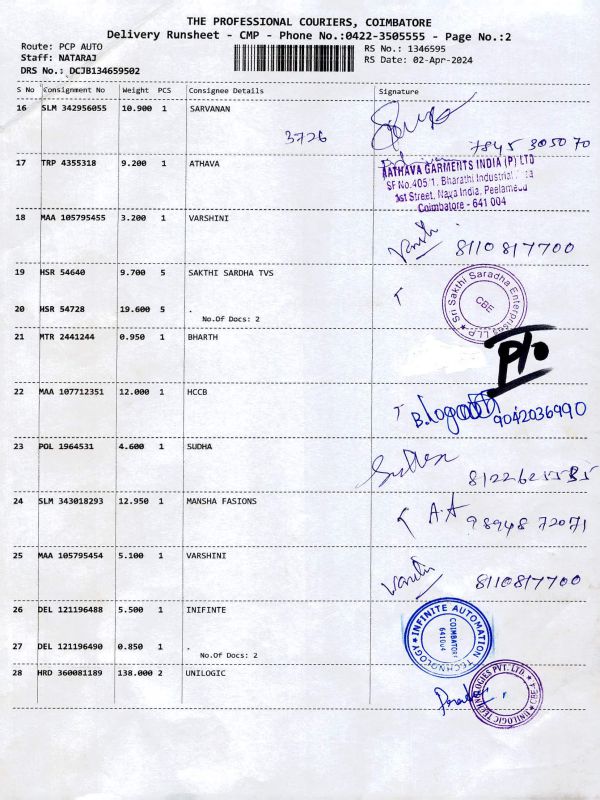 THE PROFESSIONAL COURIERS, COIMBATORE
Delivery Runsheet - CMP - Phone No.:0422-3505555 - Page No.:2
Route: PCP AUTO
Staff: NATARAJ
DRS No.: DCJB134659502
RS No.: 1346595
RS Date: 02-Apr-2024
S No Consignment No Weight PCS Consignee Details Signature
16 SLM 342956055 10.900 1 SARVANAN
3726
7845 305070
17 TRP 4355318 9.200 1 ATHAVA
AATHAVA GARMENTS INDIA (P) LTD
SF No.405/1, Bharathi Industrial
1st Street, Nava India, Peelamedu
Coimbatore - 641 004
18 MAA 105795455 3.200 1 VARSHINI
8110 817700
19 HSR 54640 9.700 5 SAKTHI SARDHA TVS
Sri Sakthi Saradha Enterprises LLP
CBE
20 HSR 54728 19.600 5 .
No.Of Docs: 2
21 MTR 2441244 0.950 1 BHARTH
P/o
22 MAA 107712351 12.000 1 HCCB
9042036990
23 POL 1964531 4.600 1 SUDHA
24 SLM 343018293 12.950 1 MANSHA FASIONS
A.A
98948 72071
25 MAA 105795454 5.100 1 VARSHINI
8110817700
26 DEL 121196488 5.500 1 INIFINTE
INFINITE AUTOMATION TECHNOLOGY
COIMBATORE
27 DEL 121196490 0.850 1 .
No.Of Docs: 2
28 HRD 360081189 138.000 2 UNILOGIC
UNILOGIC TECHNOLOGIES PVT. LTD. CBE-4